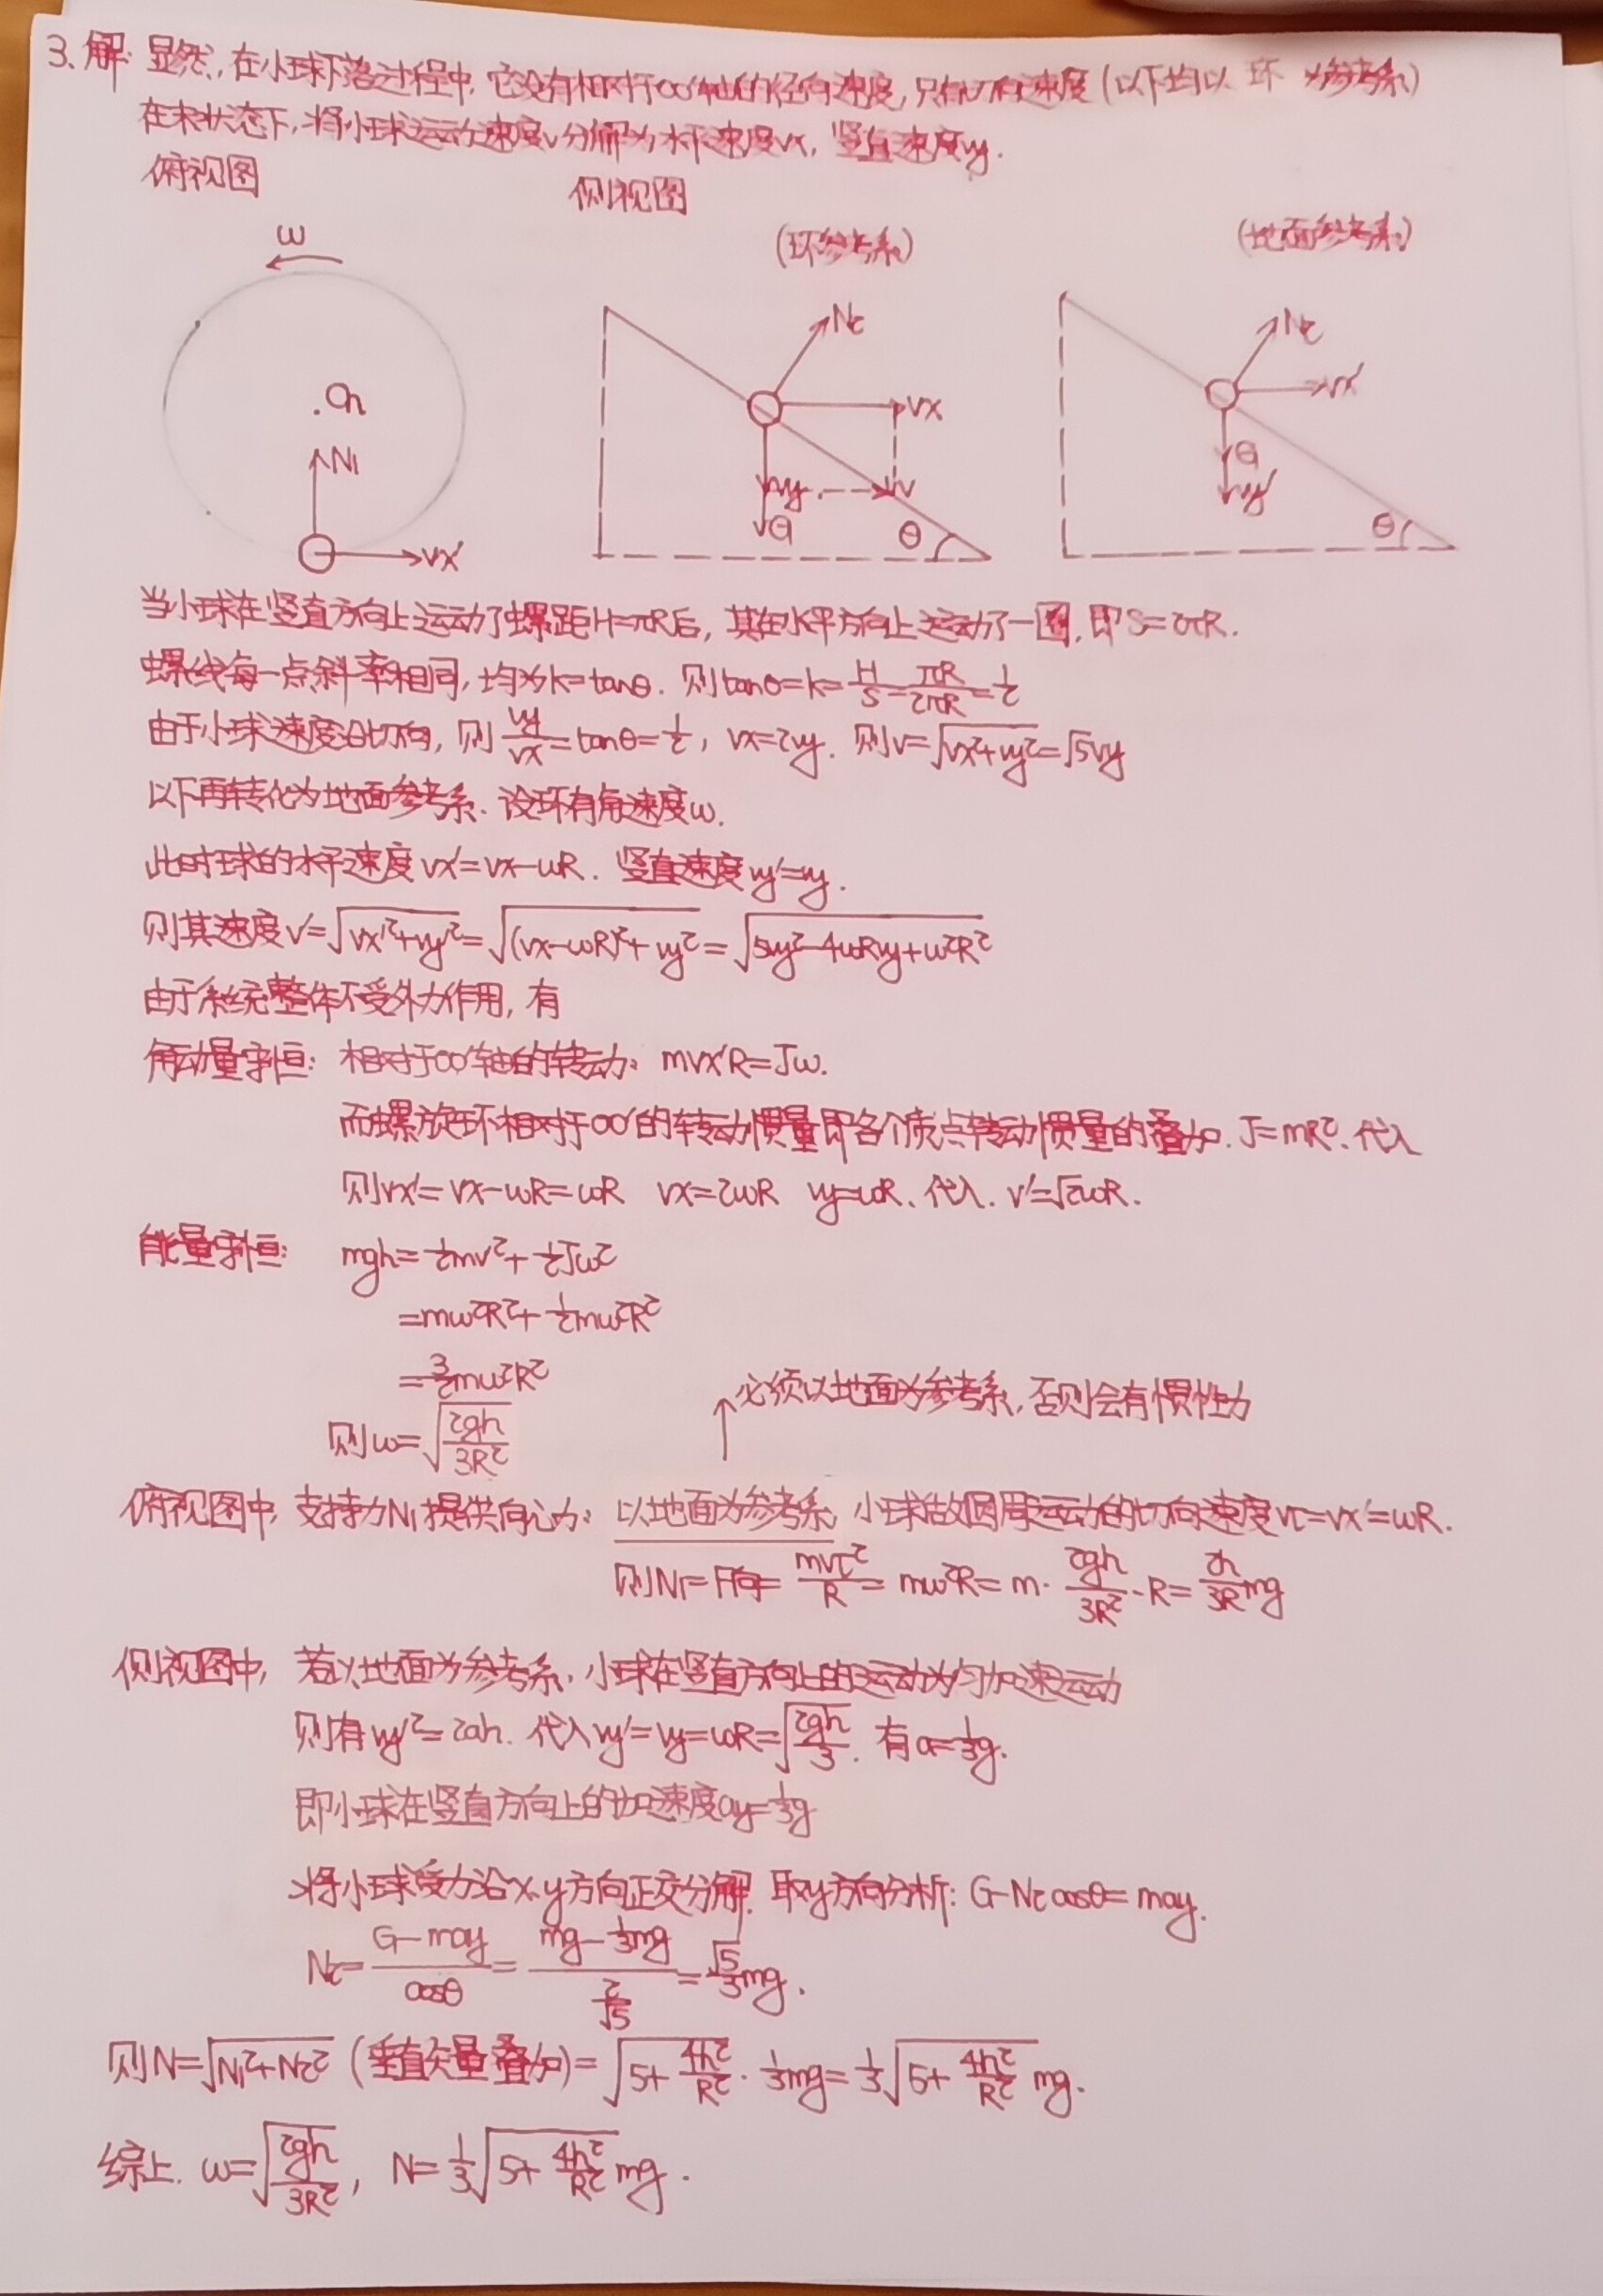 3、解：显然，在小球下落过程中，它没有相对于OO′轴的径向速度，只有切向速度（以下均以 环 为参考系）
在末状态下，将小球运动速度v分解为水平速度vx，竖直速度vy.
俯视图
侧视图
（环参考系）
（地面参考系）
ω
N2
N2
vx
vx′
N1
G
vy
v
vy′
G
θ
θ
vx′
当小球在竖直方向上运动了螺距H=πR后，其在水平方向上运动了一圈，即S=2πR.
螺线每一点斜率相同，均为k=tanθ. 则tanθ=k=H/S=πR/2πR=1/2
由于小球速度沿切向，则vy/vx=tanθ=1/2，vx=2vy. 则v=√(vx²+vy²)=√5vy
以下再转化为地面参考系. 设环有角速度ω.
此时球的水平速度vx′=vx-ωR. 竖直速度vy′=vy.
则其速度v′=√(vx′²+vy′²)=√((vx-ωR)²+vy²)=√(5vy²-4ωRvy+ω²R²)
由于系统整体不受外力作用，有
角动量守恒：相对于OO′轴的转动：mvx′R=Jω.
而螺旋环相对于OO′的转动惯量即各个质点转动惯量的叠加. J=mR². 代入
则vx′=vx-ωR=ωR vx=2ωR vy=ωR. 代入. v′=√2ωR.
能量守恒：mgh=1/2mv′²+1/2Jω²
=mω²R²+1/2mω²R²
=3/2mω²R²
则ω=√(2gh/3R²)
↑必须以地面为参考系，否则会有惯性力
俯视图中，支持力N1提供向心力：以地面为参考系 小球做圆周运动的切向速度vτ=vx′=ωR.
则N1=F向=mvτ²/R=mω²R=m·2gh/3R²·R=2h/3R mg
侧视图中，若以地面为参考系，小球在竖直方向上的运动为匀加速运动
则有vy′²=2ah. 代入vy′=vy=ωR=√(2gh/3). 有a=1/3g.
即小球在竖直方向上的加速度ay=1/3g
将小球受力沿x、y方向正交分解. 取y方向分析：G-N2cosθ=may.
N2=(G-may)/cosθ=(mg-1/3mg)/(2/√5)=√5/3mg.
则N=√(N1²+N2²)（垂直矢量叠加）=√(5+4h²/R²)·1/3mg=1/3√(5+4h²/R²)mg.
综上. ω=√(2gh/3R²)，N=1/3√(5+4h²/R²)mg.